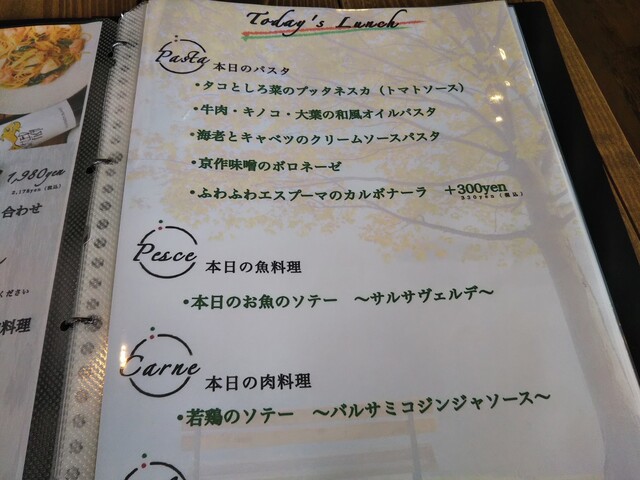 Today's Lunch
Pasta 本日のパスタ
・タコとしろ菜のプッタネスカ（トマトソース）
・牛肉・キノコ・大葉の和風オイルパスタ
・海老とキャベツのクリームソースパスタ
・京作味噌のボロネーゼ
・ふわふわエスプーマのカルボナーラ ＋300yen
330yen（税込）
Pesce 本日の魚料理
・本日のお魚のソテー ～サルサヴェルデ～
Carne 本日の肉料理
・若鶏のソテー ～バルサミコジンジャソース～
1,980yen
2,178yen（税込）
合わせ
ください
料理